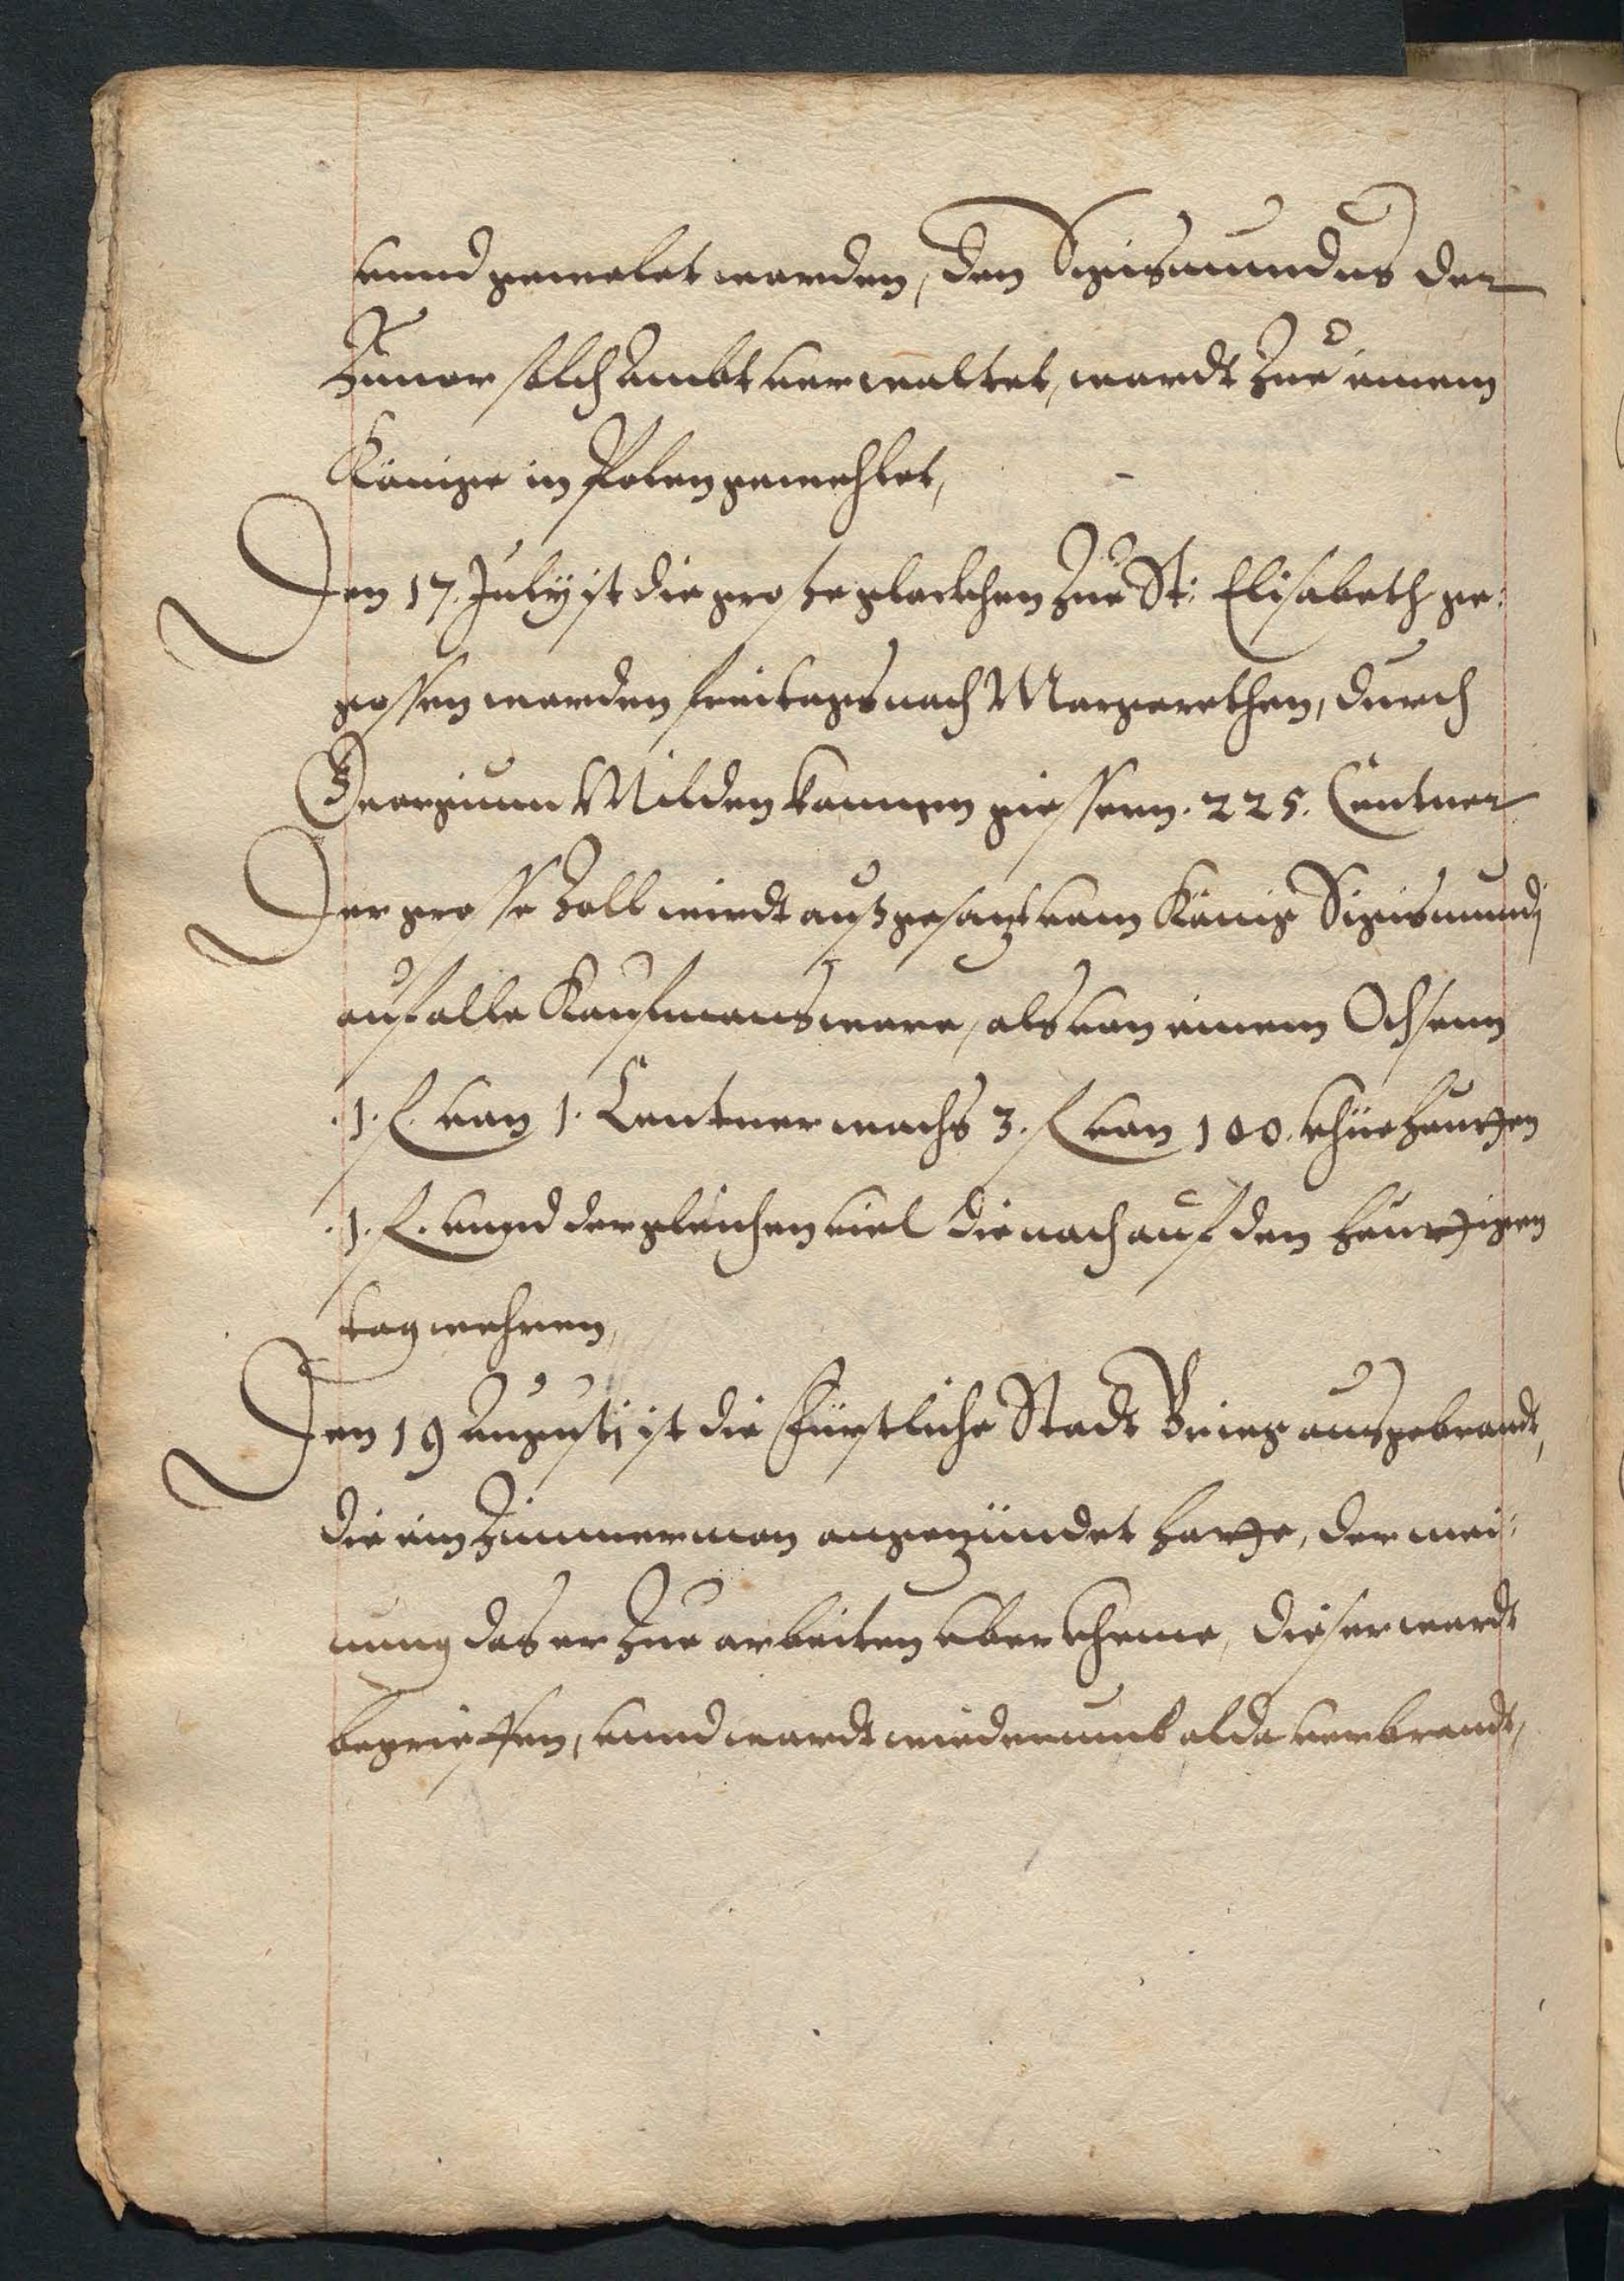 vnnd gewelet worden, den Sigismundus der
Zuuor solch Ambt verwaltet, wardt Zue einem
Könige in Polen gewehlet,
Den 17. July ist die grosze glockhen Zue St: Elisabeth ge:
gossen worden freitags nach Margarethen, durch
Georgium Milden kannen giessern. 225. Centner
Der grosse Zoll wirdt auszgesatzt vom König Sigismundj
auf alle Kaufmans ware, als von einem Ochsenn
.1. f. von 1. Centner wachs 3. f von 100. khüe heutten
.1. f. vnnd dergleichen viel die noch auf den heuttigen
tag wehren,
Den 19 Augustj ist die Fürstliche Stadt Brieg ausgebrandt,
die ein Zimmerman angezündet hatte, der mei:
nung das er Zue arbeiten vberkheme, dieser wardt
begrieffen, vnnd wardt wiederumb alda verbrandt,